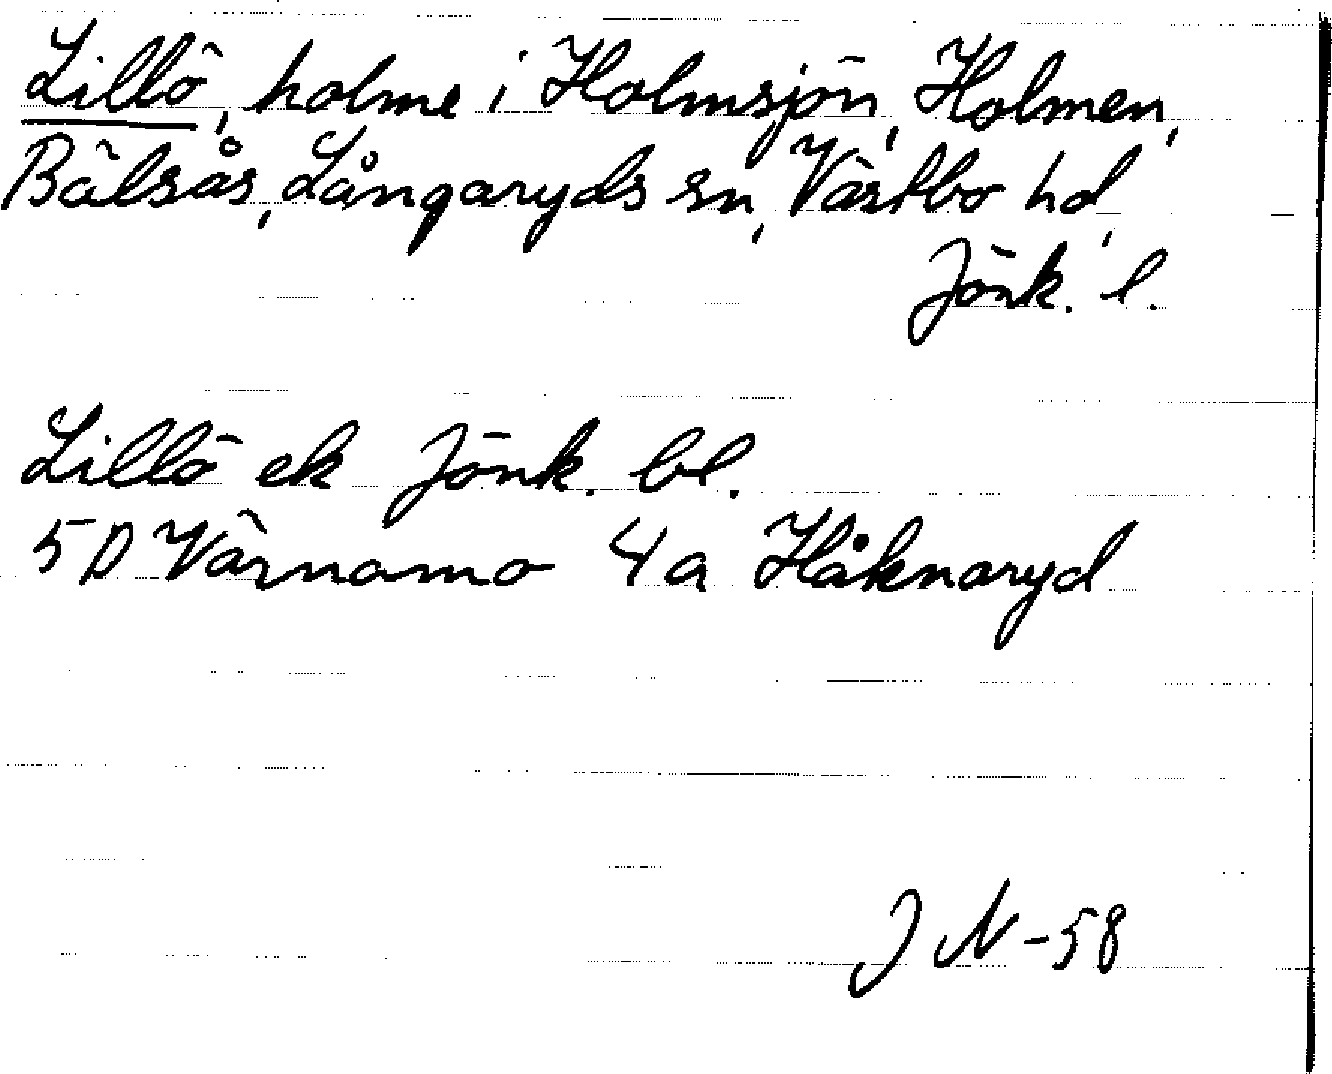 Lillö, holme i Holmsjön, Holmen,
Bälsås, Långaryds sn, Västbo hd,
Jönk. l.
Lillö ek Jönk. bl.
5D Värnamo 4a Håknaryd
J N -58